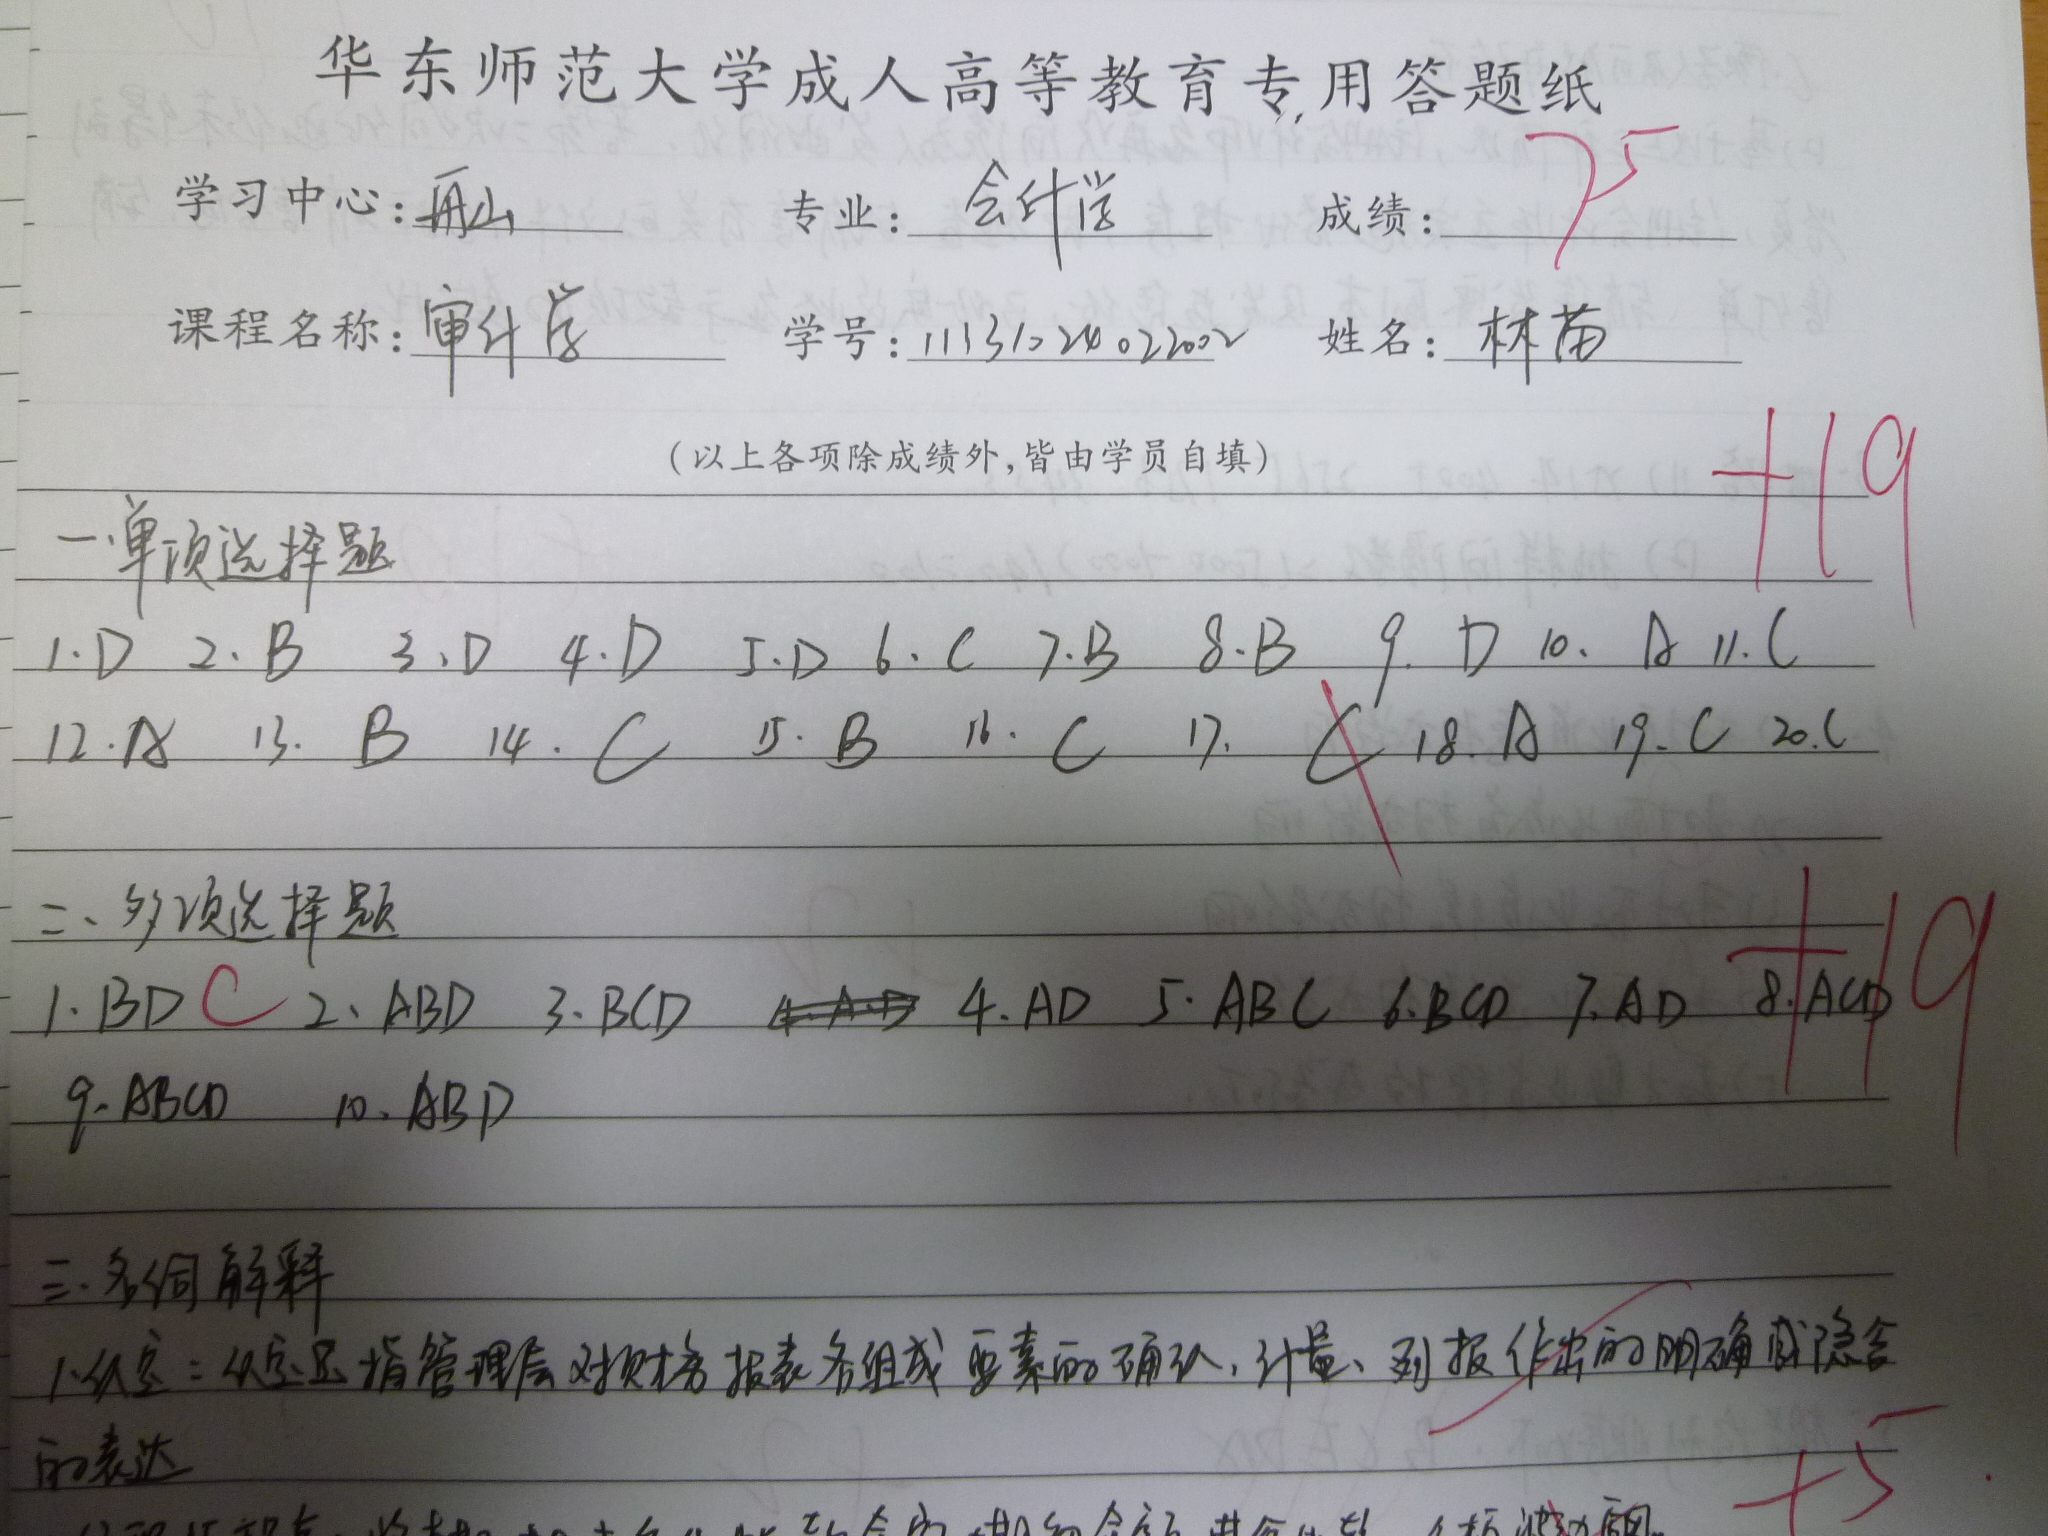 华东师范大学成人高等教育专用答题纸
学习中心:舟山 专业:会计学 成绩:75
课程名称:审计学 学号:11131024022002 姓名:林苗
(以上各项除成绩外,皆由学员自填)
+19
一.单项选择题
1.D 2.B 3.D 4.D 5.D 6.C 7.B 8.B 9.D 10.A 11.C
12.A 13.B 14.C 15.B 16.C 17.C 18.A 19.C 20.C
+19
二、多项选择题
1.BD C 2、ABD 3.BCD 4.AD 4.AD 5.ABC 6.BCD 7.AD 8.ACD
9.ABCD 10.ABD
三.名词解释
1.认定:认定是指管理层对财务报表各组成要素的确认、计量、列报作出的明确或隐含
的表达
+5